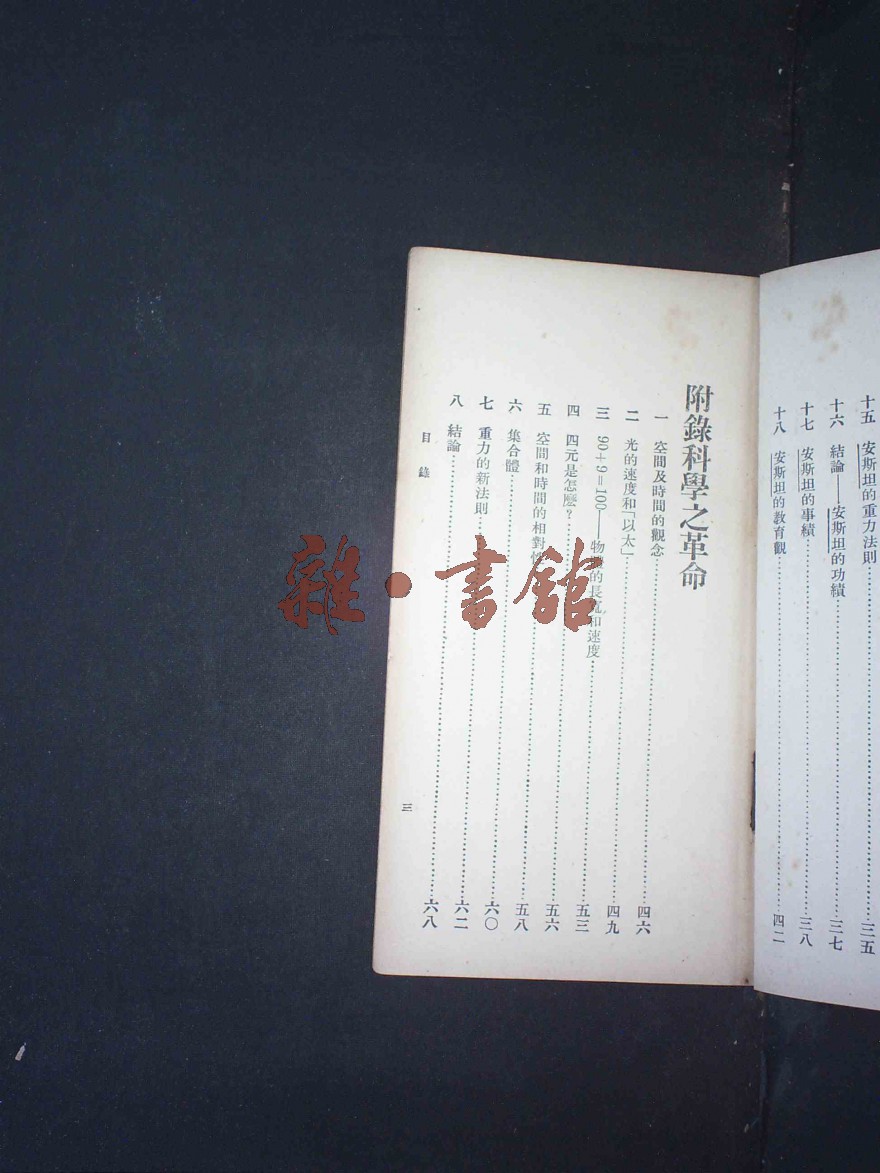 十五 安斯坦的重力法則……三五
十六 結論——安斯坦的功績……三七
十七 安斯坦的事績……三八
十八 安斯坦的教育觀……四二
附錄科學之革命
一 空間及時間的觀念……四六
二 光的速度和「以太」……四九
三 90+9=100——物的長和速度……五三
四 四元是怎麽?……五六
五 空間和時間的相對性……五八
六 集合體……六〇
七 重力的新法則……六二
八 結論……六八
目錄
三
雜·書館